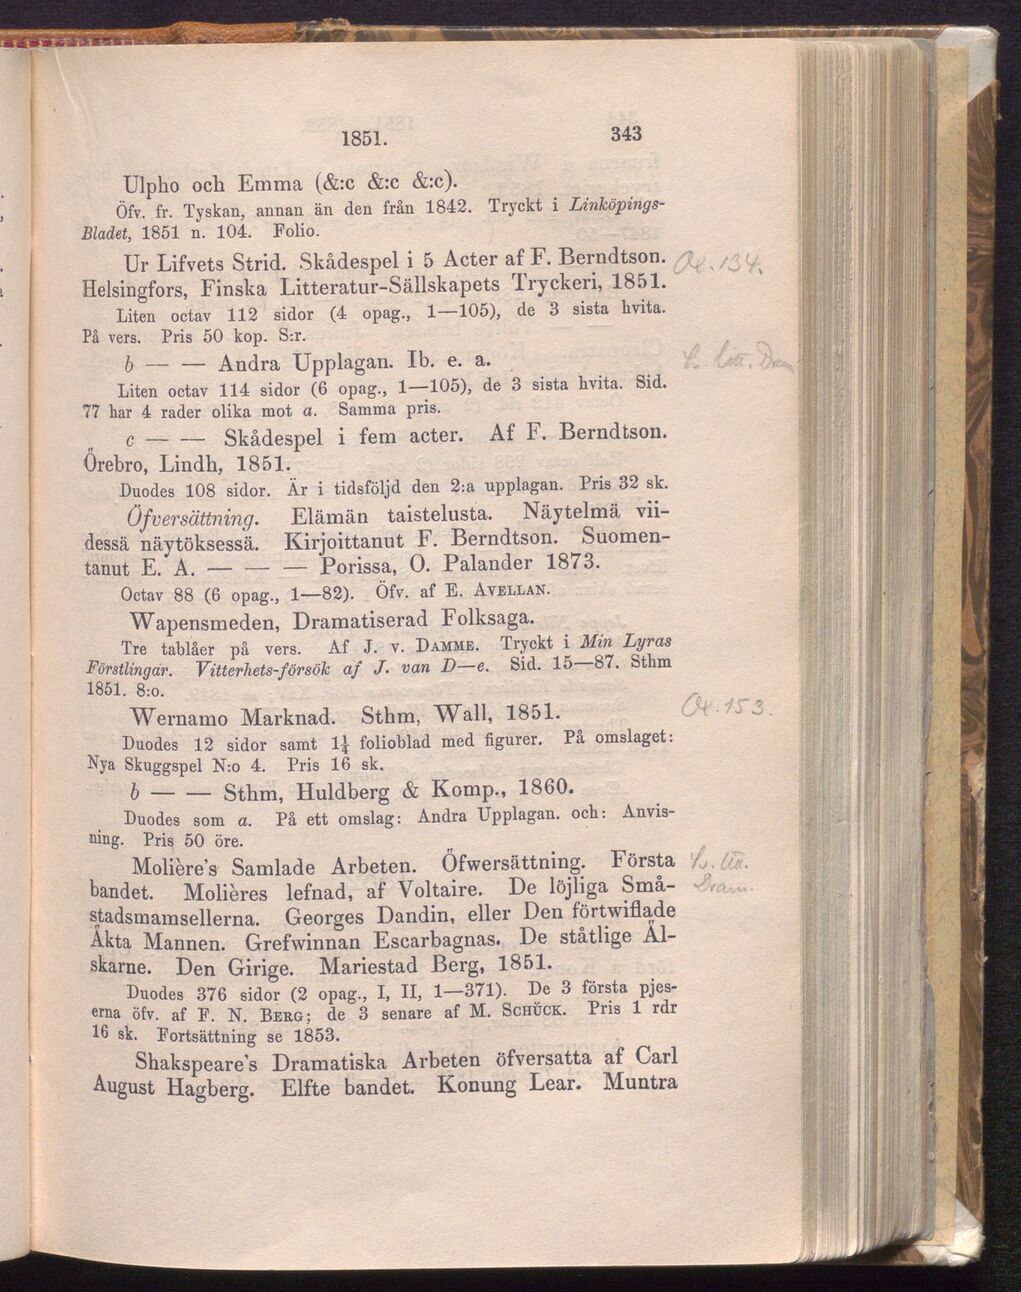 1851. 343
Ulpho och Emma (&:c &:c &:c).
Öfv. fr. Tyskan, annan än den från 1842. Tryckt i Linköpings-
Bladet, 1851 n. 104. Folio.
Ur Lifvets Strid. Skådespel i 5 Acter af F. Berndtson.
Helsingfors, Finska Litteratur-Sällskapets Tryckeri, 1851.
Liten octav 112 sidor (4 opag., 1—105), de 3 sista hvita.
På vers. Pris 50 kop. S:r.
b — — Andra Upplagan. Ib. e. a.
Liten octav 114 sidor (6 opag., 1—105), de 3 sista hvita. Sid.
77 har 4 rader olika mot a. Samma pris.
c — — Skådespel i fem acter. Af F. Berndtson.
Örebro, Lindh, 1851.
Duodes 108 sidor. Är i tidsföljd den 2:a upplagan. Pris 32 sk.
Öfversättning. Elämän taistelusta. Näytelmä vii-
dessä näytöksessä. Kirjoittanut F. Berndtson. Suomen-
tanut E. A. — — — Porissa, O. Palander 1873.
Octav 88 (6 opag., 1—82). Öfv. af E. Avellan.
Wapensmeden, Dramatiserad Folksaga.
Tre tablåer på vers. Af J. v. Damme. Tryckt i Min Lyras
Förstlingar. Vitterhets-försök af J. van D—e. Sid. 15—87. Sthm
1851. 8:o.
Wernamo Marknad. Sthm, Wall, 1851.
Duodes 12 sidor samt 1¼ folioblad med figurer. På omslaget:
Nya Skuggspel N:o 4. Pris 16 sk.
b — — Sthm, Huldberg & Komp., 1860.
Duodes som a. På ett omslag: Andra Upplagan. och: Anvis-
ning. Pris 50 öre.
Molière's Samlade Arbeten. Öfwersättning. Första
bandet. Molières lefnad, af Voltaire. De löjliga Små-
stadsmamsellerna. Georges Dandin, eller Den förtwiflade
Äkta Mannen. Grefwinnan Escarbagnas. De ståtlige Äl-
skarne. Den Girige. Mariestad Berg, 1851.
Duodes 376 sidor (2 opag., I, II, 1—371). De 3 första pjes-
erna öfv. af F. N. Berg; de 3 senare af M. Schück. Pris 1 rdr
16 sk. Fortsättning se 1853.
Shakspeare's Dramatiska Arbeten öfversatta af Carl
August Hagberg. Elfte bandet. Konung Lear. Muntra
134.
153.
Dram.